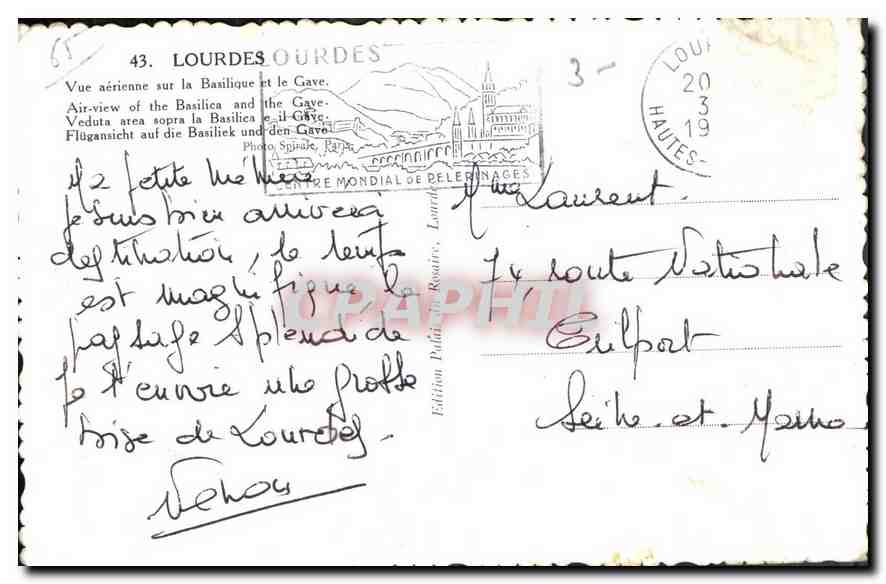 65
43. LOURDES
Vue aérienne sur la Basilique et le Gave.
Air-view of the Basilica and the Gave.
Veduta area sopra la Basilica e il Gave.
Flügansicht auf die Basiliek und den Gave
Photo Spirale, Paris
LOURDES
CENTRE MONDIAL DE PELERINAGES
3 -
LOUR
20
3
19
HAUTES-
Ma petite Mémère
je suis bien arrivée à
destination, le temps
est magnifique le
paysage splendide
Je t'envoie une grosse
bise de Lourdes -
Edition Palais du Rosaire, Lourdes
Mme Laurent.
74 route Nationale
Seine-et-Marne
CPAPHIL